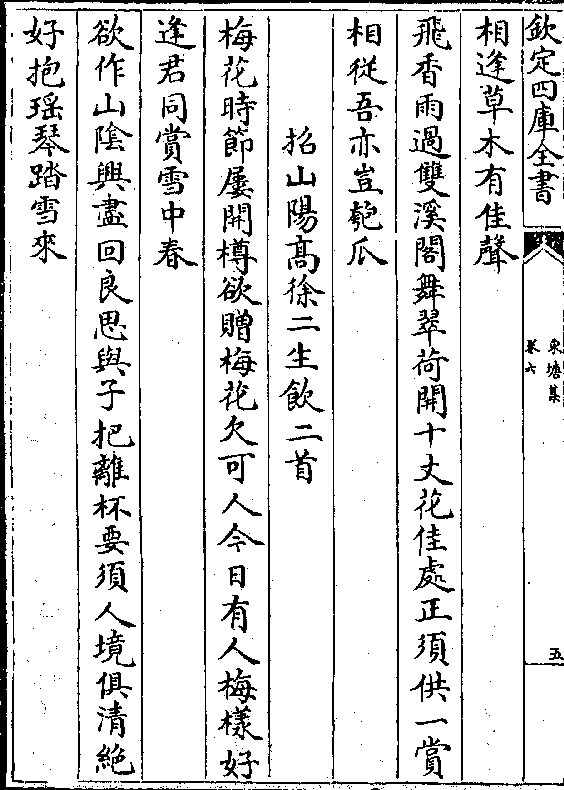 欽定四庫全書
東塘集
卷六
五
相逢草木有佳聲
飛香雨過雙溪閣舞翠荷開十丈花佳處正須供一賞
相從吾亦豈匏瓜
招山陽高徐二生飲二首
梅花時節屢開樽欲贈梅花欠可人今日有人梅樣好
逢君同賞雪中春
欲作山陰興盡回良思與子把離杯要須人境俱清絶
好抱瑶琴踏雪來